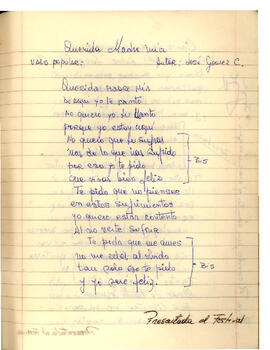 Querida Madre mia
vals popular: Autor: José Gomez C.
Querida Madre Mia
De aqui yo te canto
No quiero yo tu llanto
porque yo estoy aqui
No quiero que tu sufras
mas de lo que has sufrido
por eso yo te pido
que vivas bien feliz
Bis
Te pido que no pienses
en estos sufrimientos
yo quiero estar contento
Al no verte sufrir
Te pido que me ames
no me al olvido
tan solo eso te pido
y yo sere feliz.
Bis
Presentada al Festival